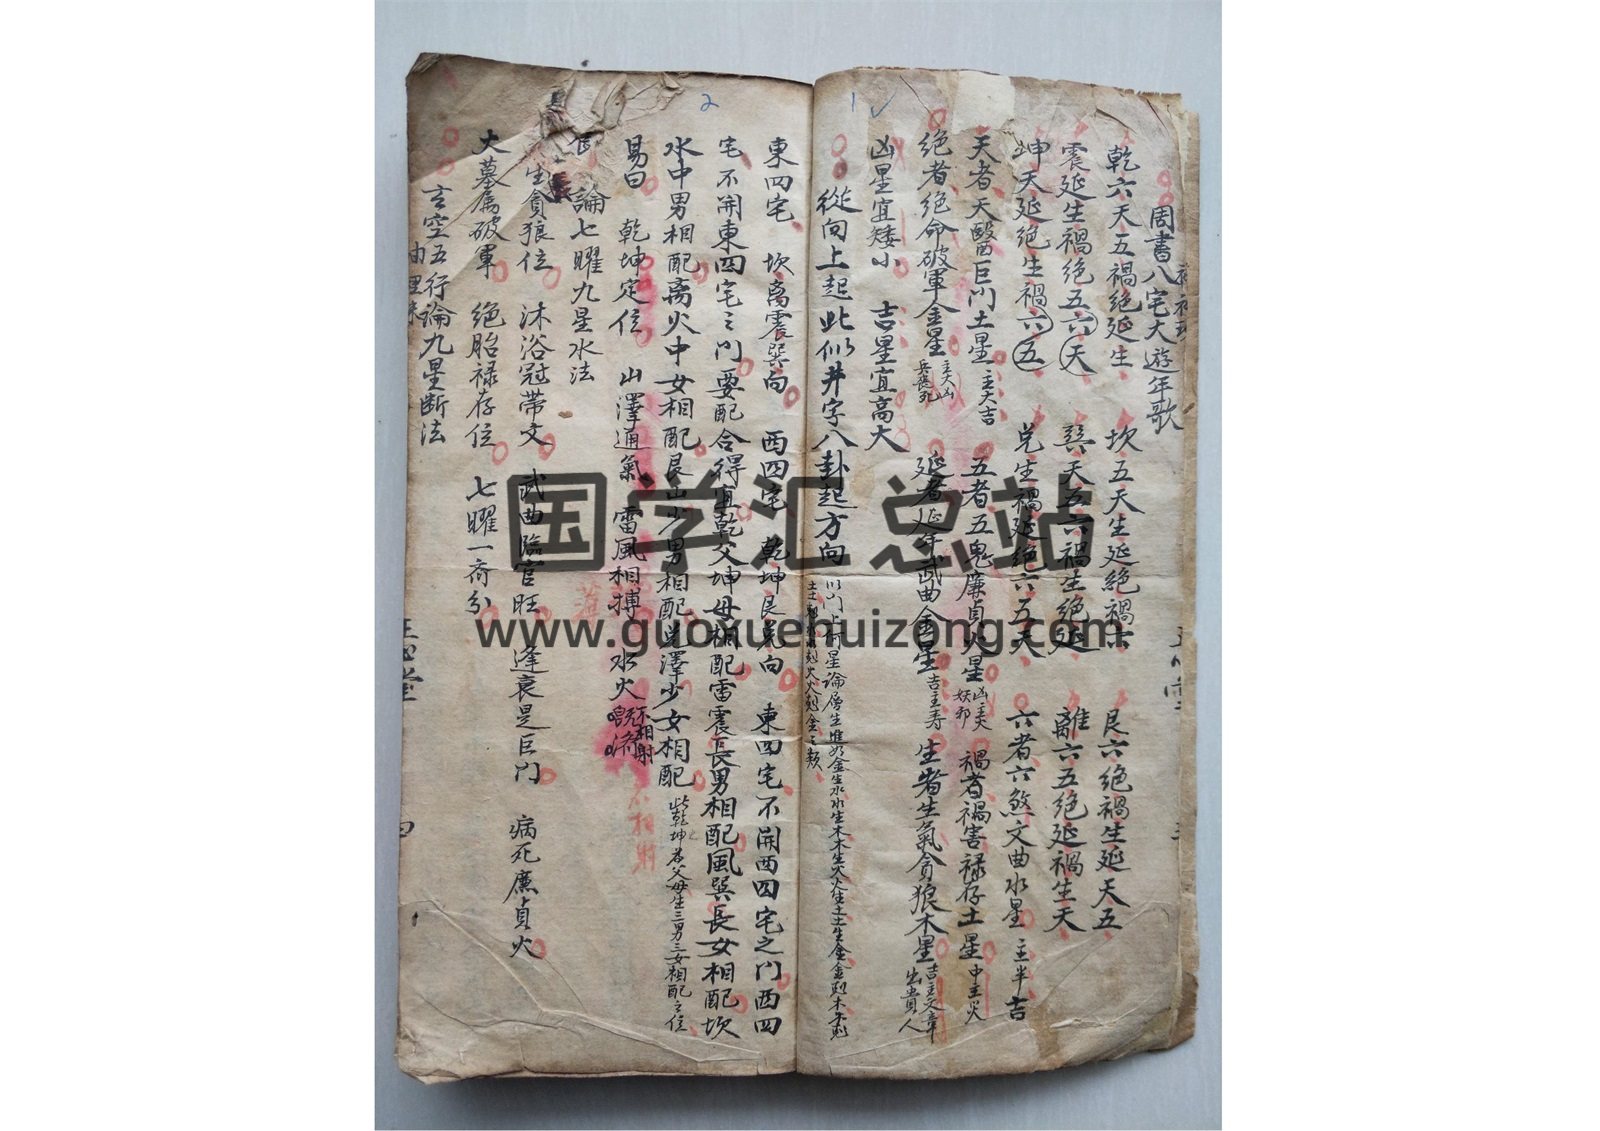 1
周書八宅大遊年歌
乾六天五禍絕延生 坎五天生延絕禍六 艮六絕禍生延天五
震延生禍絕五六天 巽天五六禍生絕延 離六五絕延禍生天
坤天延絕生禍六五 兌生禍延絕六五天 六者六煞文曲水星 主半吉
天者天醫巨门土星 主大吉 五者五鬼廉貞火星 凶主夭妖邪 禍者禍害禄存土星 中主災
绝者绝命破軍金星 主大凶兵丧死 延者延年武曲金星 吉主寿 生者生氣貪狼木星 吉主文章出貴人
凶星宜矮小 吉星宜高大
從向上起此似井字八卦起方向 以门上何星論層生進如金生水水生木木生火火生土土生金金剋木木剋
土土剋水水剋火火剋金之類
2
東四宅 坎离震巽向 西四宅 乾坤艮兌向 東四宅不開西四宅之门西四
宅不開東四宅之门要配合得宜乾父坤母相配雷震長男相配風巽長女相配坎
水中男相配离火中女相配艮山少男相配兌澤少女相配 此乾坤為父母生三男三女相配之位
易曰 乾坤定位 山澤通氣 雷風相搏 水火 不相射
薄
不相射
論七曜九星水法
生貪狼位 沐浴冠带文 武曲臨官旺 逢衰是巨门 病死廉貞火
大墓属破軍 绝胎禄存位 七曜一齐分
玄空五行論九星断法
国学汇总站
www.guoxuehuizong.com